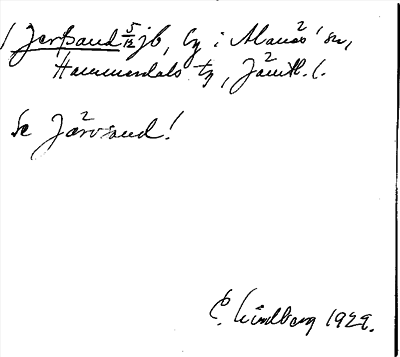 Jarsand 5/12 jb, by i Alanäs sn,
Hammerdals tg, Jämtl. l.
Se Järvsand!
C. Lindberg 1929.